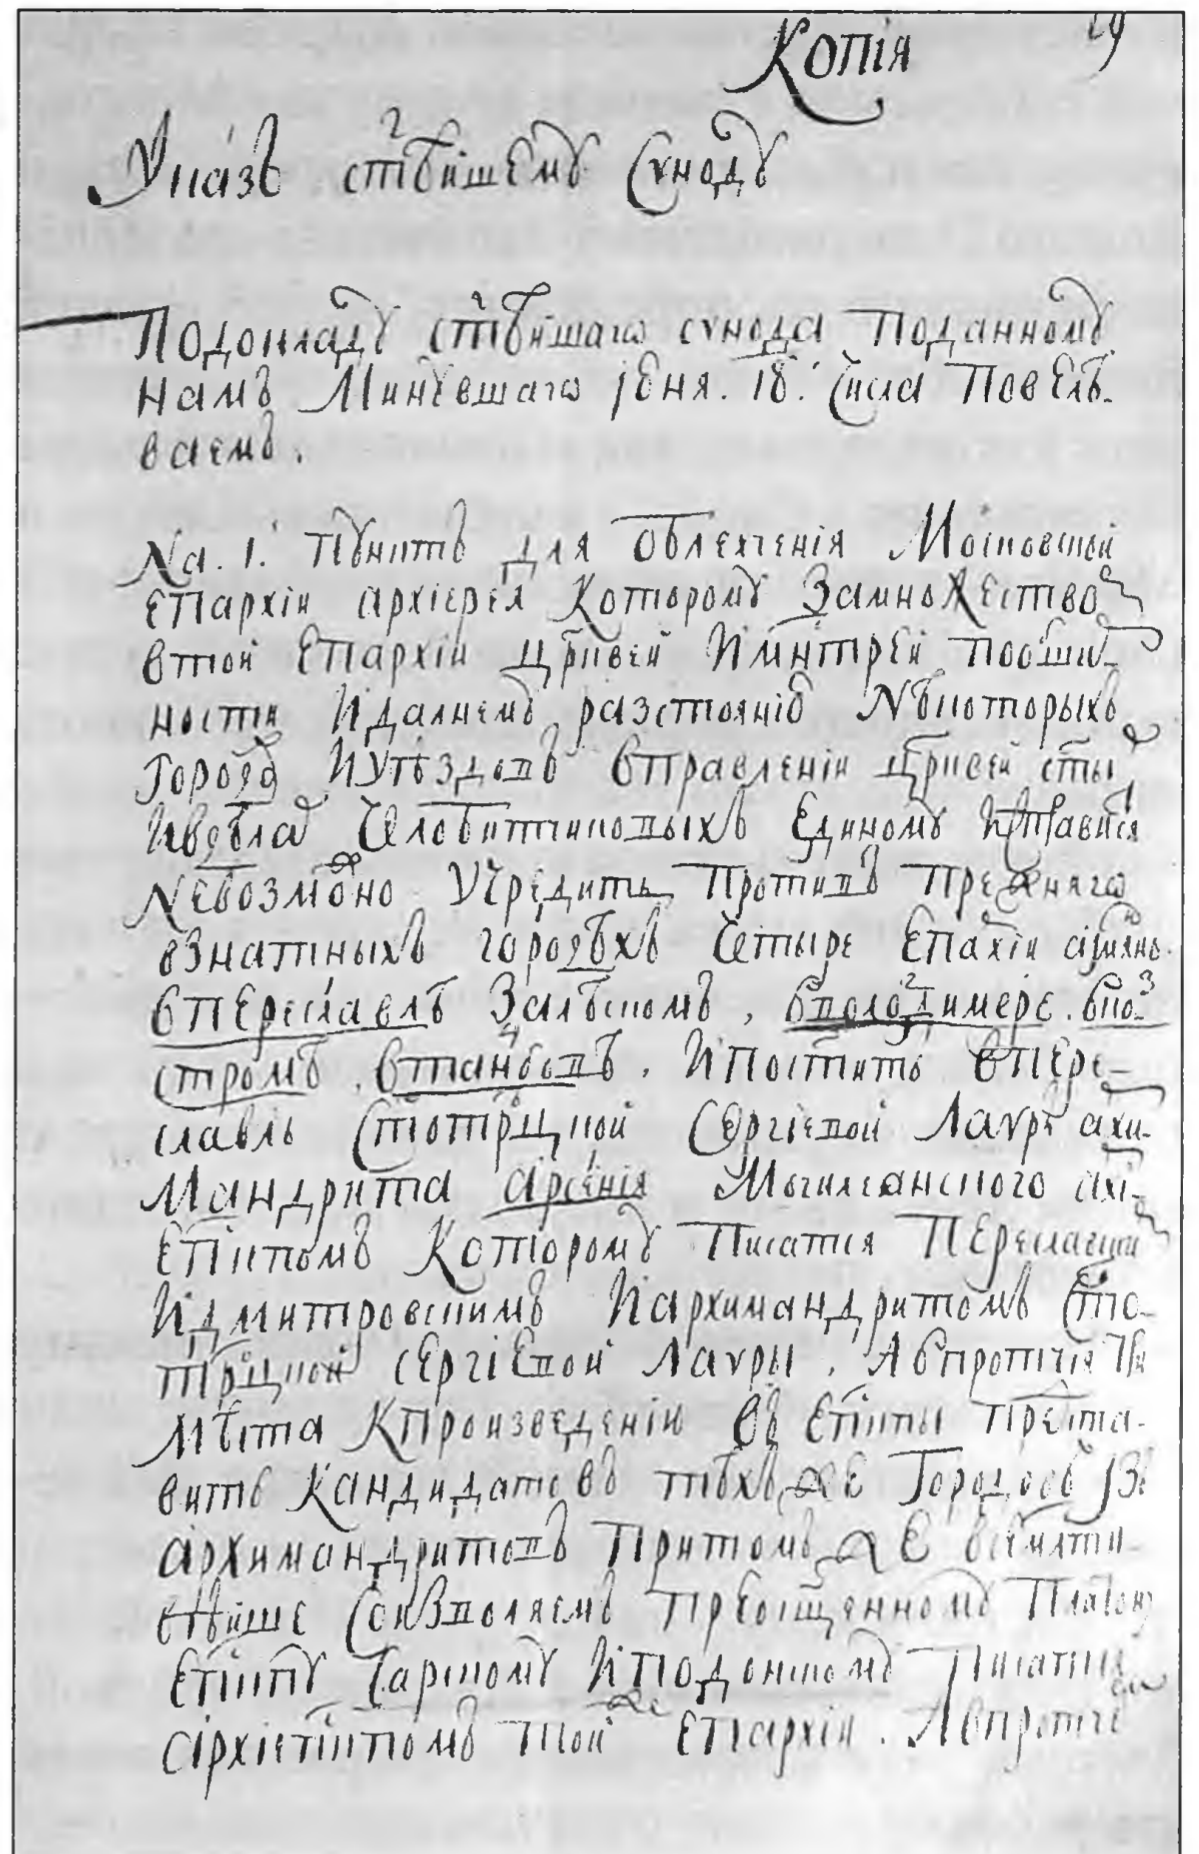 Копія 29
Указъ ст҃ѣйшему Сѵноду
Подокладу ст҃ѣйшаго сѵнода Поданному
намъ Минувшаго іюня. 18. Числа Повелѣ-
ваемъ.
На. 1. пунктъ для облехченія Московской
епархіи архіерея Которому Замножество
втои Епархіи цр҃квеи Имн҃трей пообши-
ности Идалнемъ разстояніе Нѣкоторыхъ
городо Иуѣздовъ вправленіи цр҃квеи ст҃ы
Ивдѣла Челобитчиковыхъ Единому Исправится
Невозможно Учредить Противъ Прежняго
взнатныхъ городѣхъ Четыре Епархіи аимянно
вПереславлѣ Залѣскомъ, вволодимере. вко-
стромѣ. втанбовѣ. ИПоствить вПере-
славль Ст҃отр҃ицкой Сергіевой Лаѵры ахи-
Мандрита арсенія Могилеанского ахі-
Еп҃ископомъ Которому Писатися Переславски
Идмитровскимъ Иархимандритомъ Ст҃о-
тр҃ицкой Сергіевой Лаѵры. Авпротчія
Мѣста Кпроизведенію въ Еп҃ископы предста-
вить Кандидатовъ тѣхъже Городовъ Iзъ
архимандритовъ Притомъже всемилти-
вѣйше Соизволяемъ преосщ҃енному Платону
Еп҃ископу Сарскому Иподонскому Писатися
архіеп҃ископомъ тойже епархіи. Авпротчі